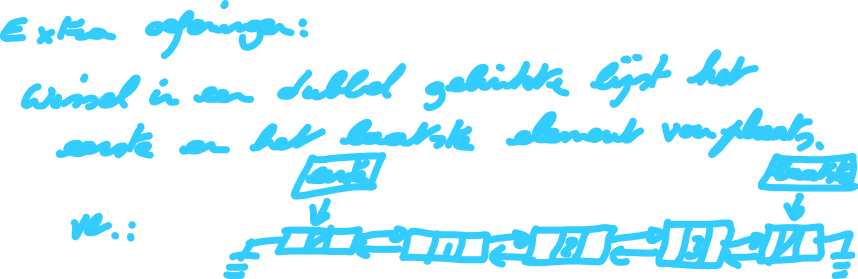 Extra oefeningen:
Wissel in een dubbel gelinkte lijst het
eerste en het laatste element van plaats.
eerste laatste
vb.: